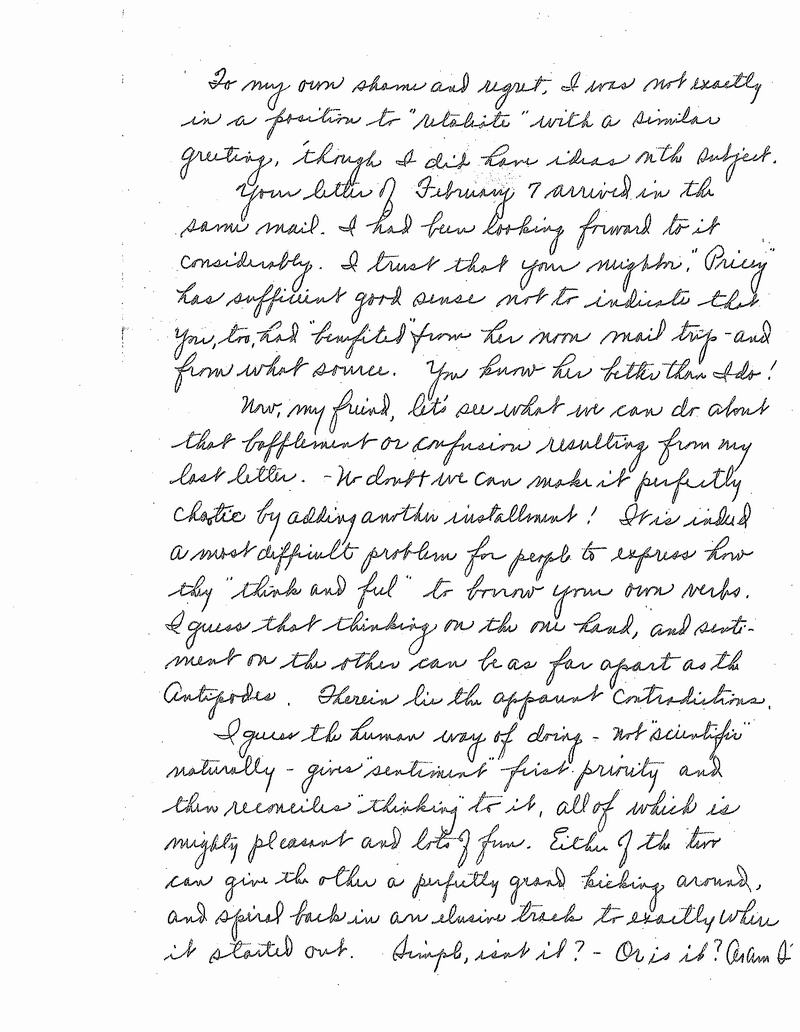 To my own shame and regret, I was not exactly
in a position to "retaliate" with a similar
greeting, 'though I did have ideas on the subject.
Your letter of February 7 arrived in the
same mail. I had been looking forward to it
considerably. I trust that your neighbor, "Pricey"
has sufficient good sense not to indicate that
you, too, had "benefited" from her noon mail trip - and
from what source. You know her better than I do!
Now, my friend, let's see what we can do about
that bafflement or confusion resulting from my
last letter. - No doubt we can make it perfectly
chaotic by adding another installment! It is indeed
a most difficult problem for people to express how
they "think and feel" to borrow your own verbs.
I guess that thinking on the one hand, and senti-
ment on the other can be as far apart as the
Antipodes. Therein lie the apparent contradictions.
I guess the human way of doing - not "scientific"
naturally - gives "sentiment" first priority and
then reconciles "thinking" to it, all of which is
mighty pleasant and lots of fun. Either of the two
can give the other a perfectly grand kicking around,
and spiral back in an elusive track to exactly where
it started out. Simple, isn't it? - Or is it? Or am I